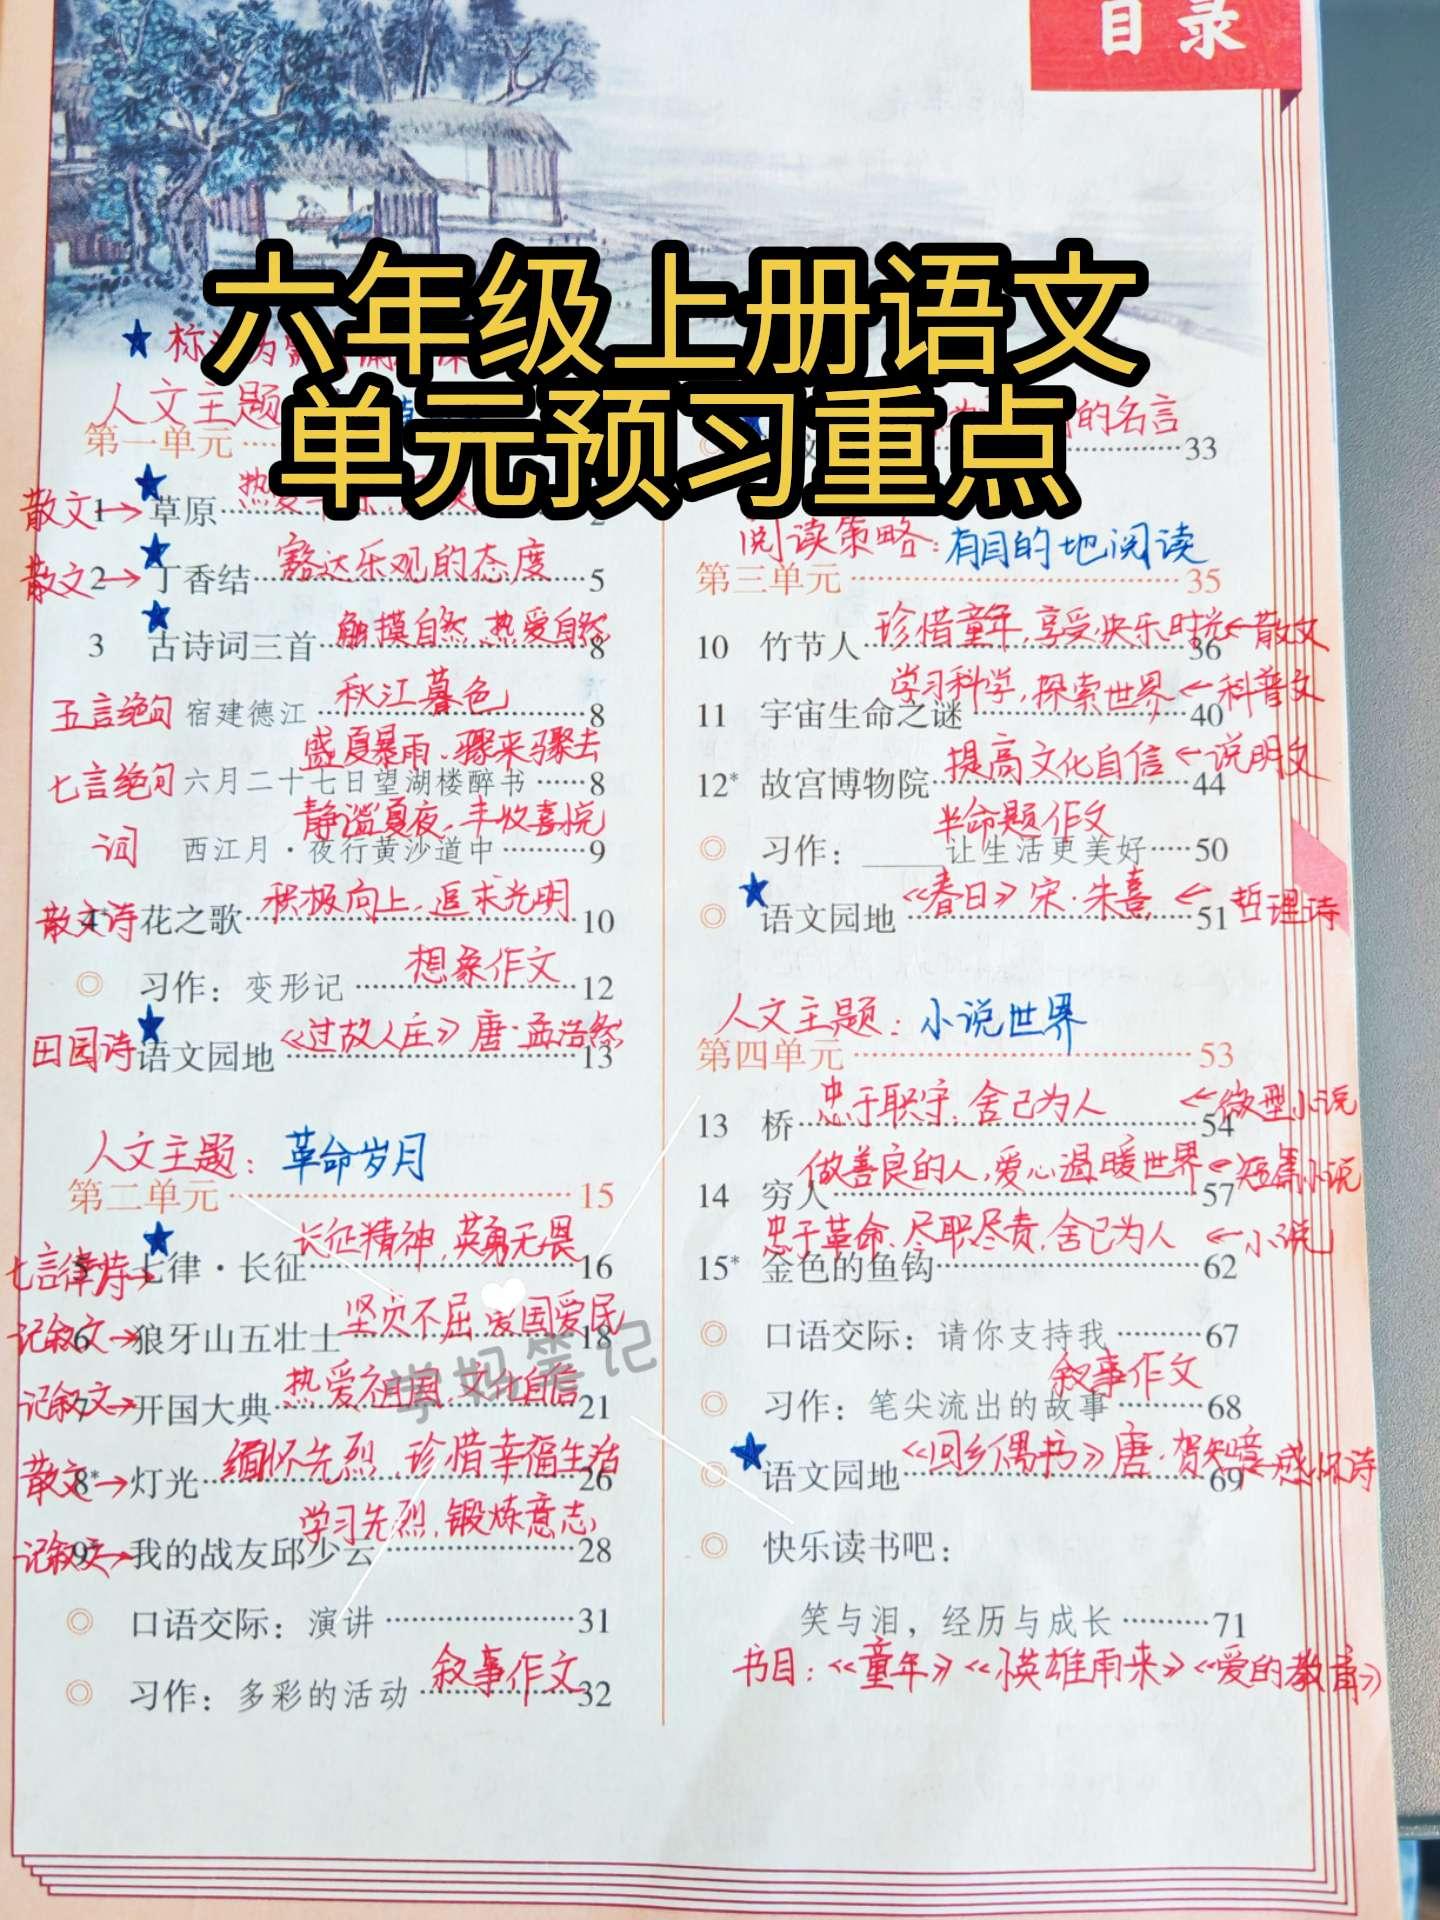 目录
六年级上册语文
单元预习重点
人文主题
第一单元
散文→ 1 草原 2
豁达乐观的态度
散文→ 2 丁香结 5
触摸自然、热爱自然
3 古诗词三首 8
秋江暮色
五言绝句 宿建德江 8
盛夏暴雨、骤来骤去
七言绝句 六月二十七日望湖楼醉书 8
静谧夏夜、丰收喜悦
词 西江月·夜行黄沙道中 9
积极向上、追求光明
散文诗 4* 花之歌 10
想象作文
习作：变形记 12
《过故人庄》唐·孟浩然
田园诗 语文园地 13
人文主题：革命岁月
第二单元 15
长征精神，英勇无畏
七言律诗→ 5 七律·长征 16
坚贞不屈 爱国爱民
记叙文→ 6 狼牙山五壮士 18
热爱祖国，文化自信
记叙文→ 7 开国大典 21
缅怀先烈，珍惜幸福生活
散文→ 8* 灯光 26
学习先烈，锻炼意志
记叙文→ 9* 我的战友邱少云 28
口语交际：演讲 31
叙事作文
习作：多彩的活动 32
的名言
33
阅读策略：有目的地阅读
第三单元 35
珍惜童年，享受快乐时光←散文
10 竹节人 36
学习科学，探索世界←科普文
11 宇宙生命之谜 40
提高文化自信←说明文
12* 故宫博物院 44
半命题作文
习作：____让生活更美好 50
《春日》宋·朱熹 ← 哲理诗
语文园地 51
人文主题：小说世界
第四单元 53
忠于职守，舍己为人 ←微型小说
13 桥 54
做善良的人，爱心温暖世界←短篇小说
14 穷人 57
忠于革命、尽职尽责，舍己为人 ←小说
15* 金色的鱼钩 62
口语交际：请你支持我 67
叙事作文
习作：笔尖流出的故事 68
《回乡偶书》唐·贺知章←感怀诗
语文园地 69
快乐读书吧：
笑与泪，经历与成长 71
书目：《童年》《小英雄雨来》《爱的教育》
学妈笔记